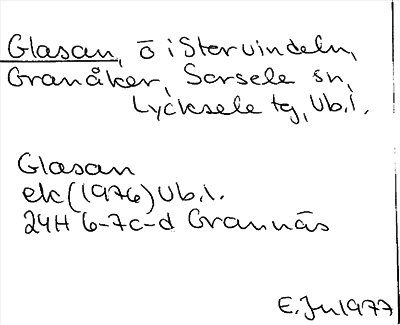 Glasan, ö i Storvindeln,
Granåker, Sorsele sn,
Lycksele tg, Vb.l.
Glasan
ek (1976) Vb.l.
24H 6-7c-d Grannäs
E.Jn 1977